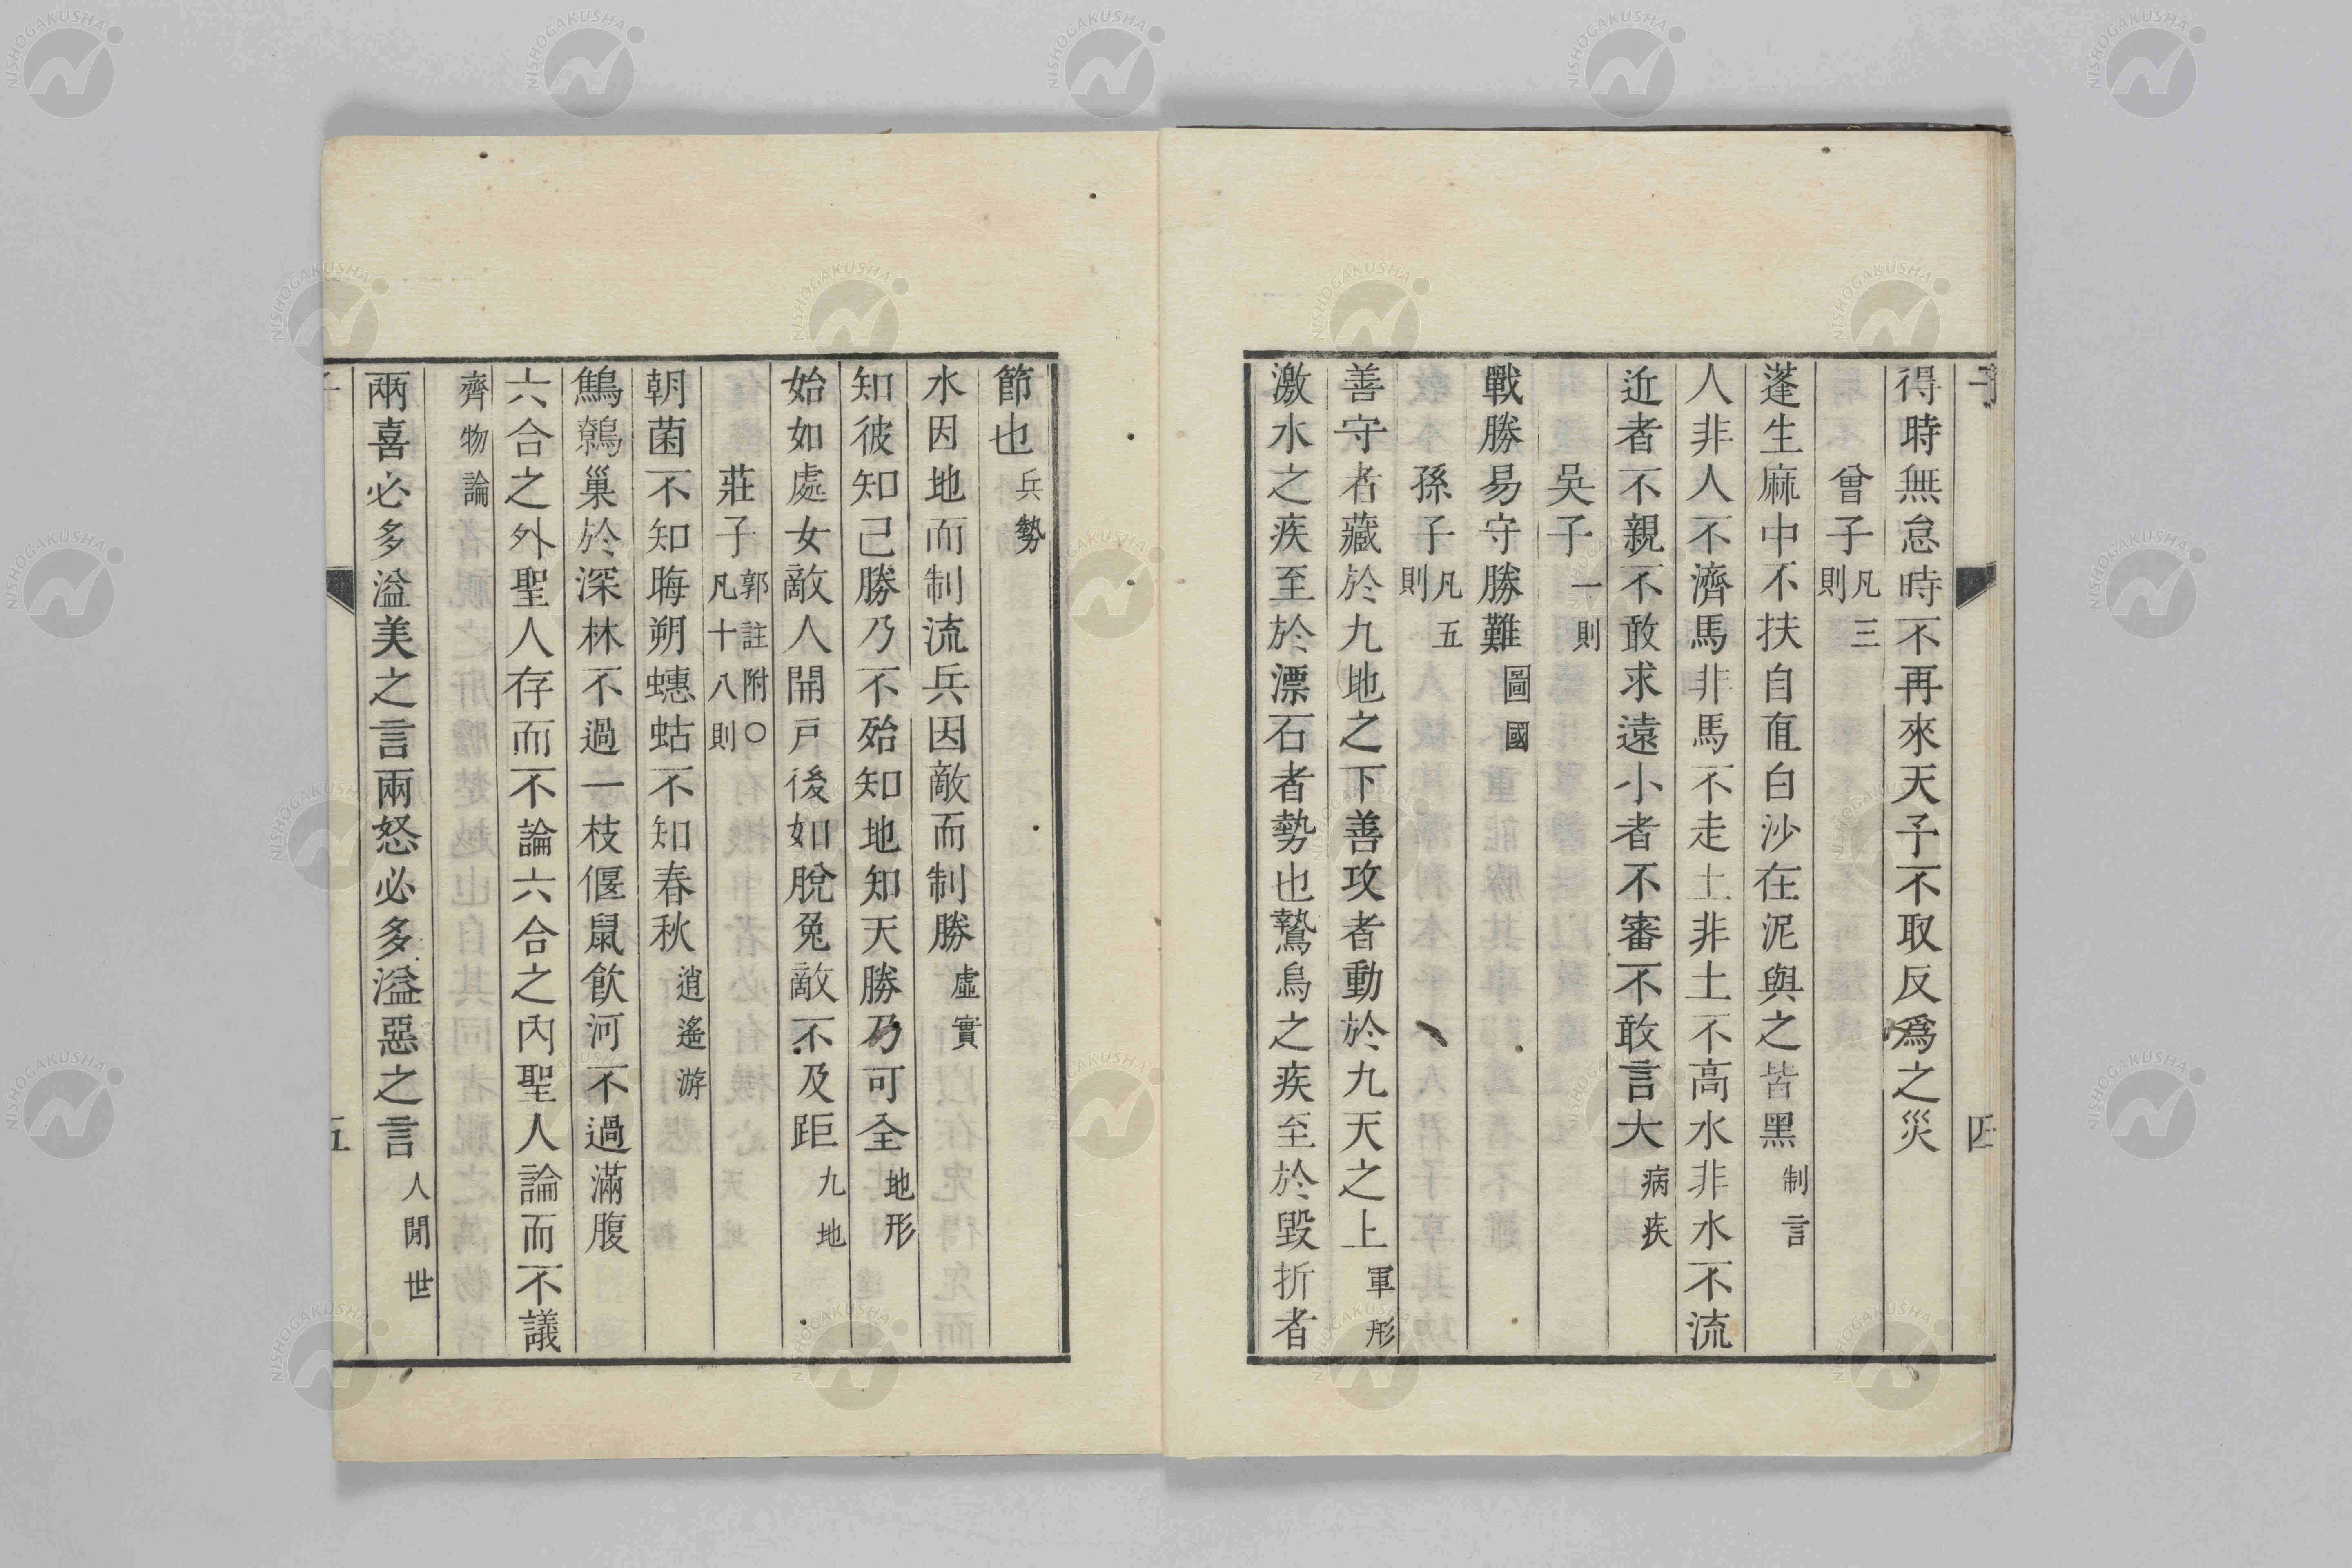 得時無怠時不再來天子不取反爲之災
曾子凡三則
蓬生麻中不扶自直白沙在泥與之皆黑制言
人非人不濟馬非馬不走土非土不高水非水不流
近者不親不敢求遠小者不審不敢言大病疾
吳子一則
戰勝易守勝難圖國
孫子凡五則
善守者藏於九地之下善攻者動於九天之上軍形
激水之疾至於漂石者勢也鷙鳥之疾至於毀折者
節也兵勢
水因地而制流兵因敵而制勝虛實
知彼知己勝乃不殆知地知天勝乃可全地形
始如處女敵人開戸後如脫兔敵不及距九地
莊子郭註附〇凡十八則
朝菌不知晦朔蟪蛄不知春秋逍遙游
鷦鷯巢於深林不過一枝偃鼠飲河不過滿腹
六合之外聖人存而不論六合之內聖人論而不議
齊物論
兩喜必多溢美之言兩怒必多溢惡之言人閒世
五
NISHOGAKUSHA